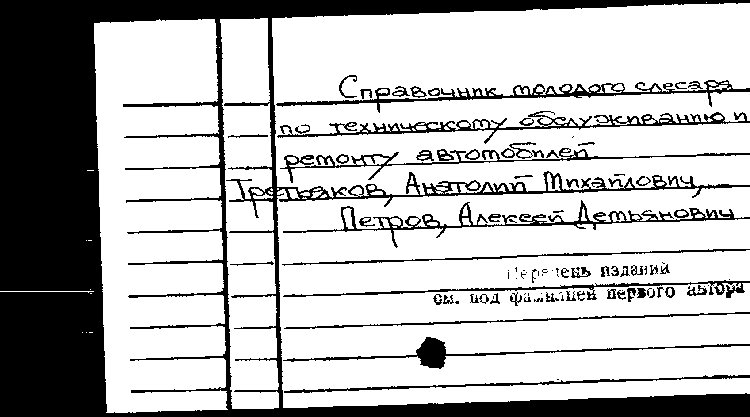 Справочник молодого слесаря
по техническому обслуживанию и
ремонту автомобилей.
Третьяков, Анатолий Михайлович,
Петров, Алексей Демьянович
Перечень изданий
см. под фамилией первого автора